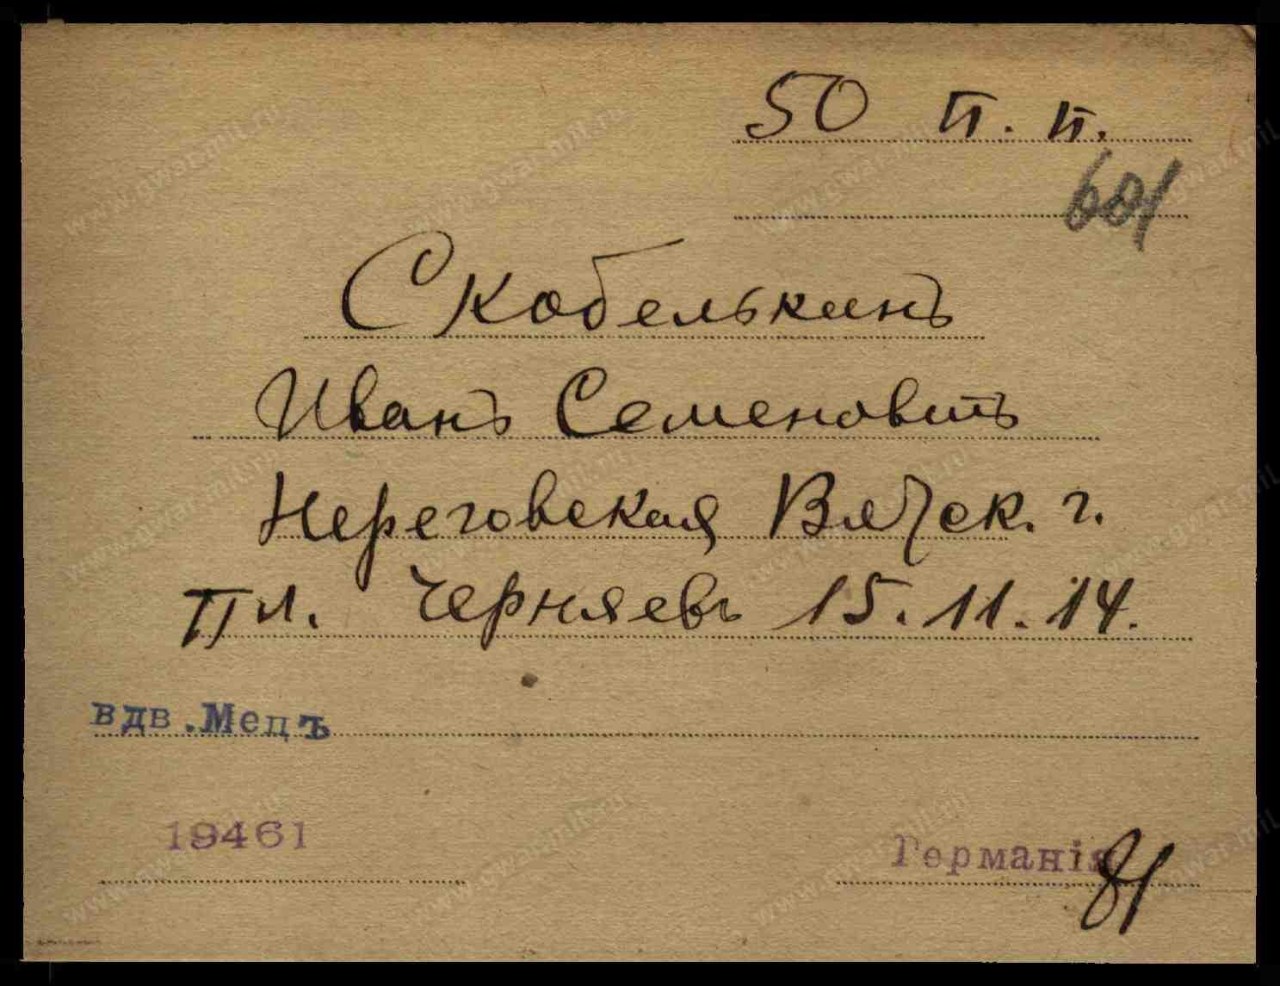 50 п. п.
601
Скобелькинъ
Иванъ Семеновичъ
Нереговская Вятск. г.
Пл. Черняевъ 15.11.14.
вдв. Мецъ
19461
Германія
81
www.gwar.mil.ru